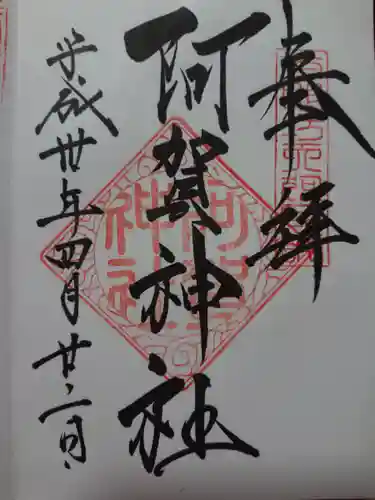 奉拝
阿賀神社
平成卅年四月廿二日
阿賀神社